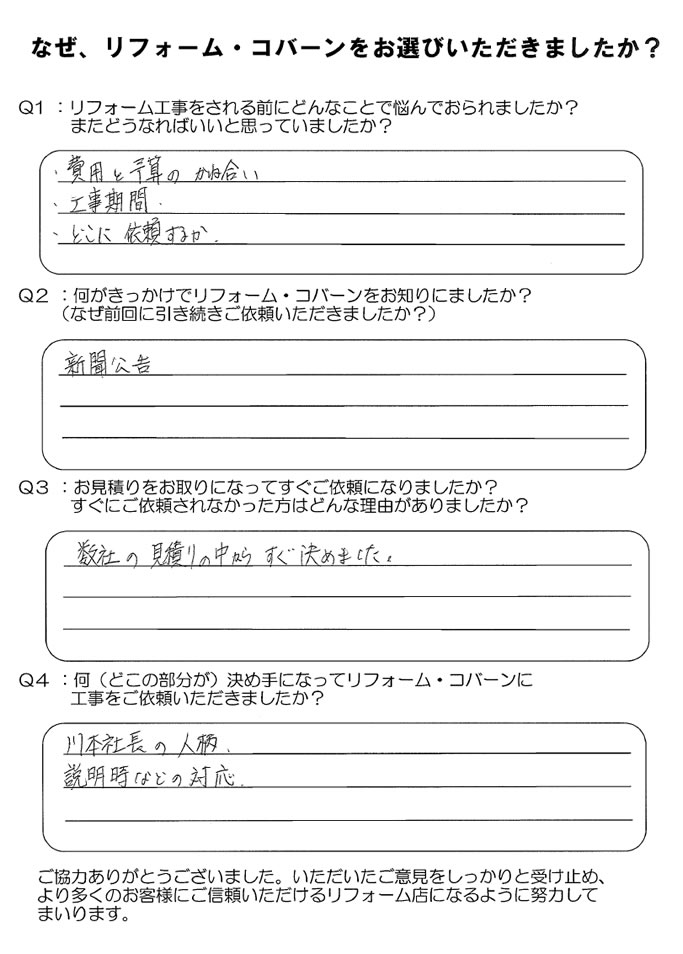 なぜ、リフォーム・コバーンをお選びいただきましたか？
Q1 ：リフォーム工事をされる前にどんなことで悩んでおられましたか？
またどうなればいいと思っていましたか？
・費用と予算のかね合い
・工事期間．
・どこに依頼するか．
Q2 ：何がきっかけでリフォーム・コバーンをお知りにましたか？
（なぜ前回に引き続きご依頼いただきましたか？）
新聞公告
Q3 ：お見積りをお取りになってすぐご依頼になりましたか？
すぐにご依頼されなかった方はどんな理由がありましたか？
数社の見積りの中からすぐ決めました。
Q4 ：何（どこの部分が）決め手になってリフォーム・コバーンに
工事をご依頼いただきましたか？
川本社長の人柄．
説明時などの対応．
ご協力ありがとうございました。いただいたご意見をしっかりと受け止め、
より多くのお客様にご信頼いただけるリフォーム店になるように努力して
まいります。